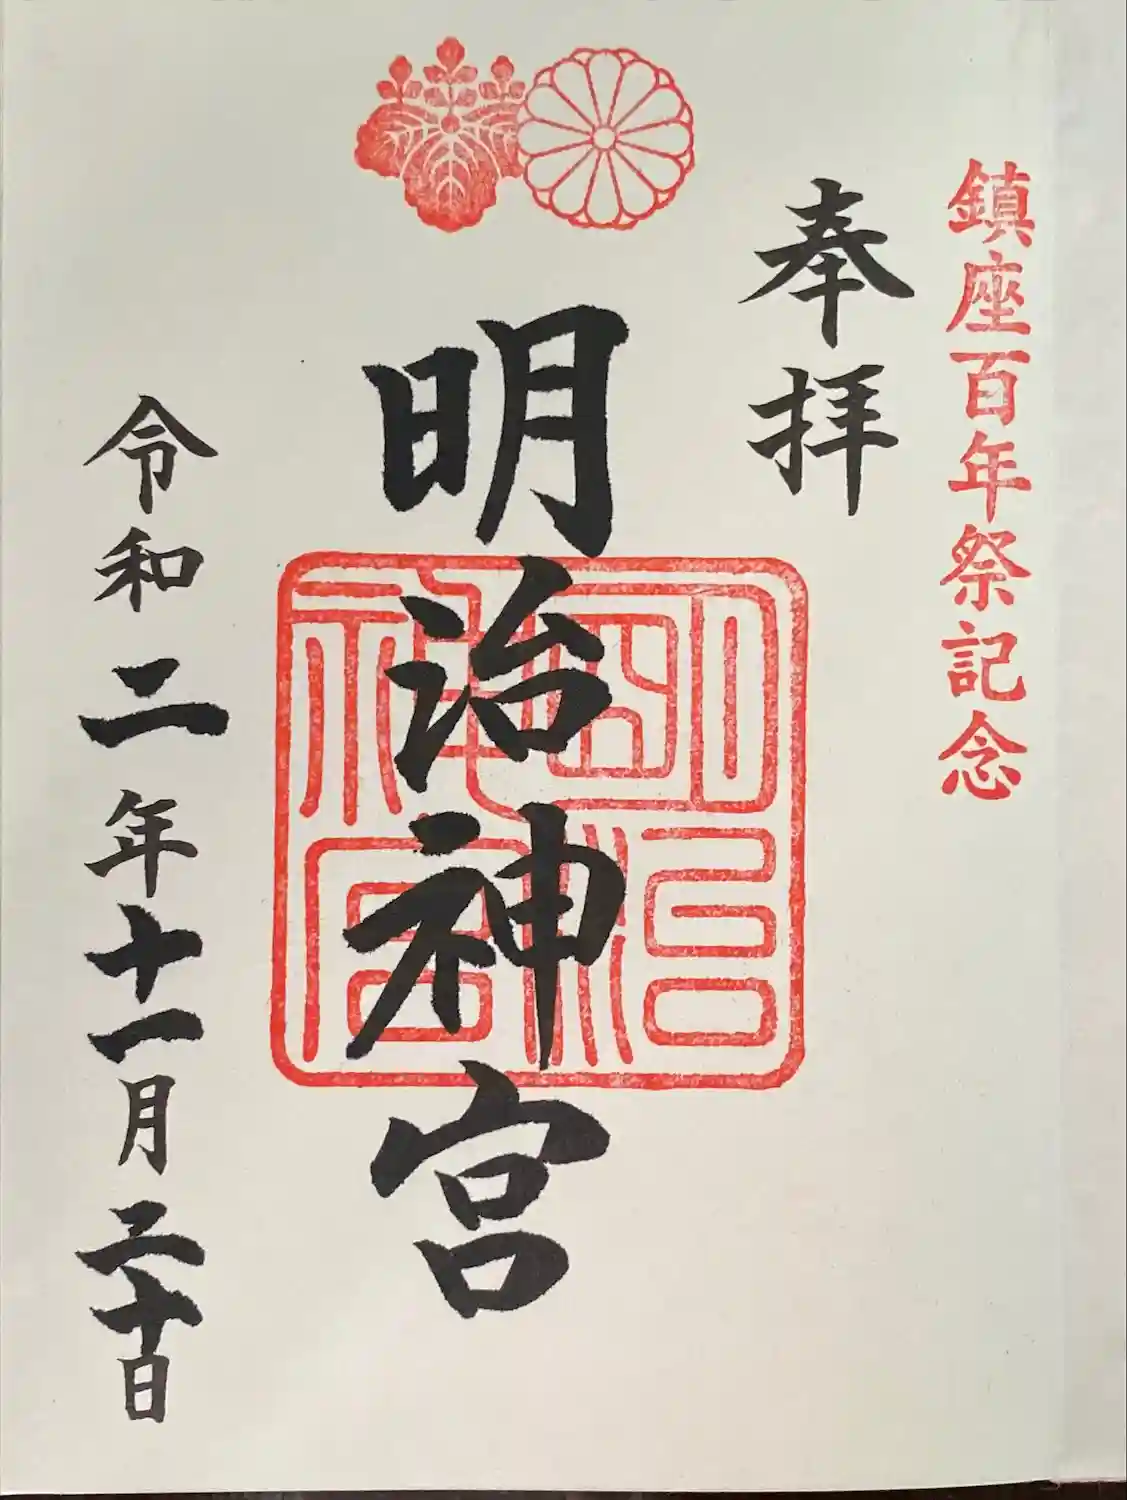 鎮座百年祭記念
奉拝
明治神宮
明治神宮
令和二年十一月二十日